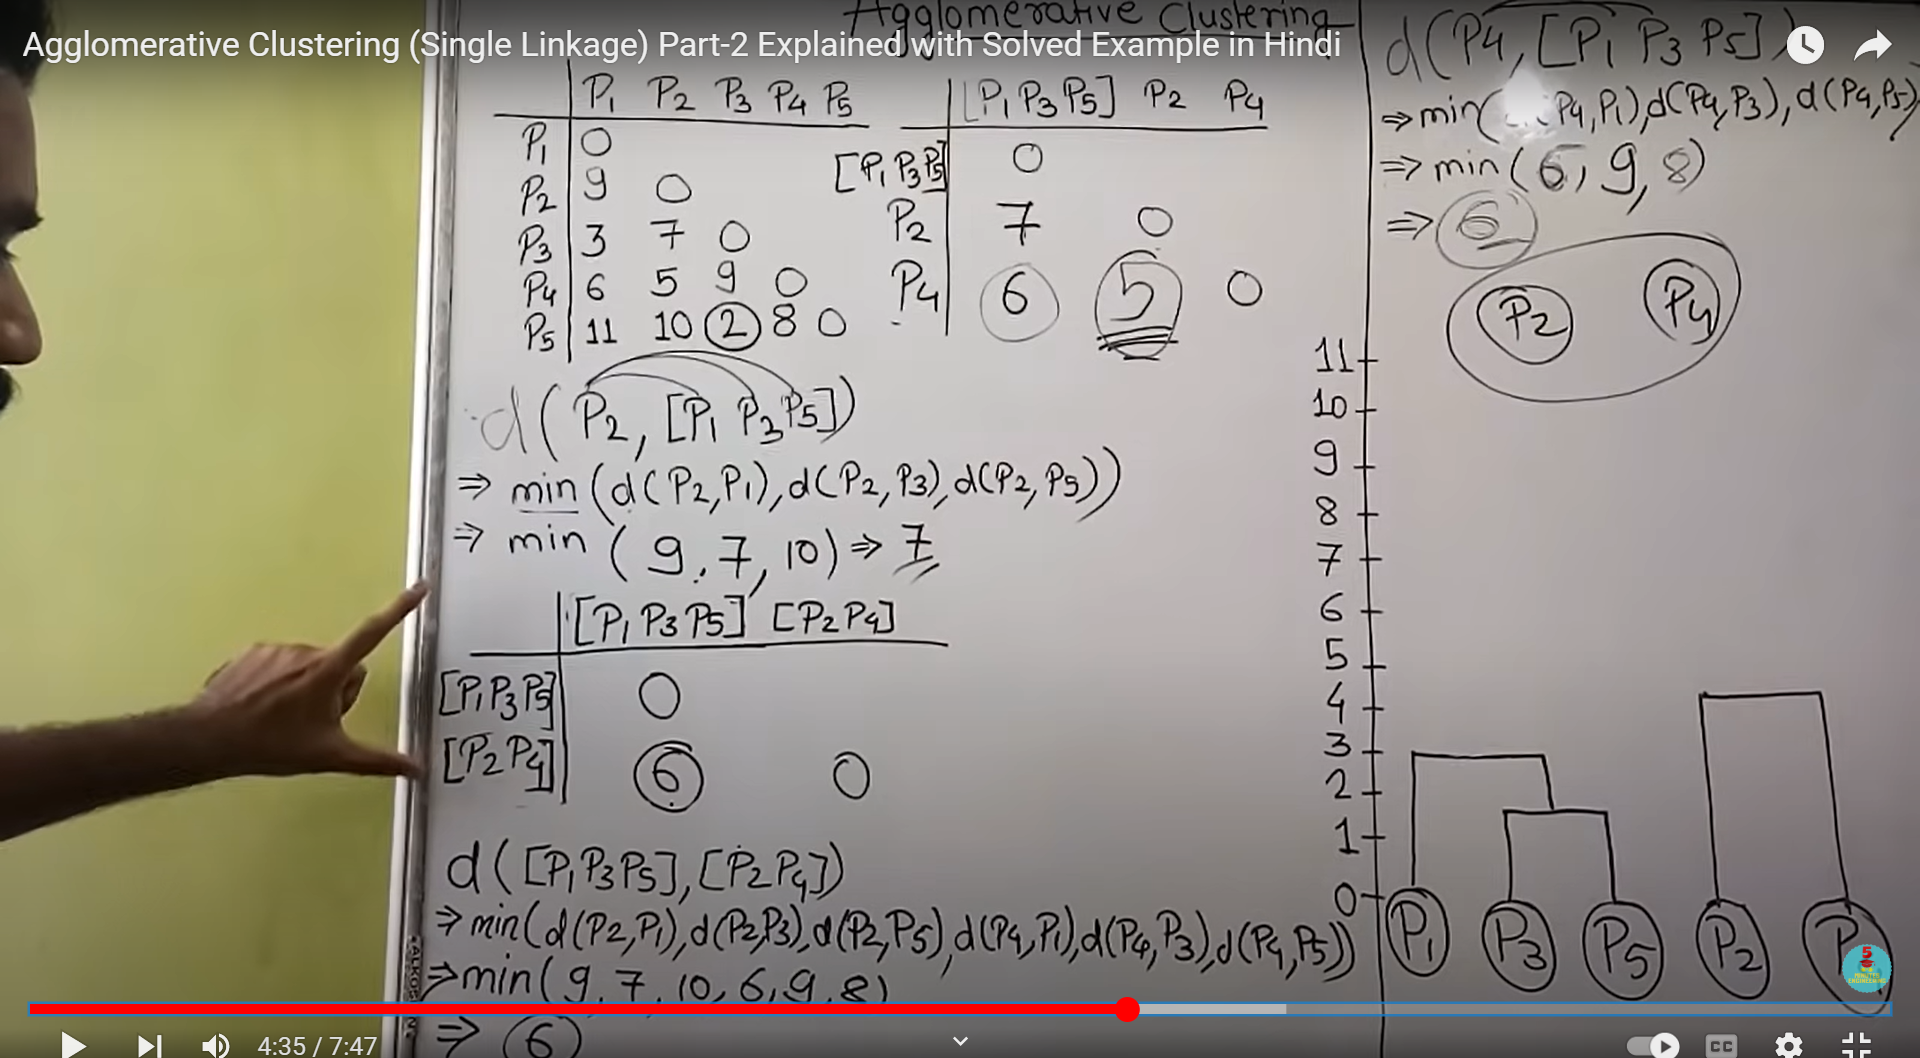 Agglomerative Clustering
Agglomerative Clustering (Single Linkage) Part-2 Explained with Solved Example in Hindi
P1 P2 P3 P4 P5
P1 0
P2 9 0
P3 3 7 0
P4 6 5 9 0
P5 11 10 2 8 0
[P1 P3 P5] P2 P4
[P1 P3 P5] 0
P2 7 0
P4 6 5 0
d(P2, [P1 P3 P5])
⇒ min (d(P2,P1), d(P2,P3), d(P2,P5))
⇒ min (9, 7, 10) ⇒ 7
[P1 P3 P5] [P2 P4]
[P1 P3 P5] 0
[P2 P4] 6 0
d([P1 P3 P5], [P2 P4])
⇒ min(d(P2,P1), d(P2,P3), d(P2,P5), d(P4,P1), d(P4,P3), d(P4,P5))
⇒ min(9, 7, 10, 6, 9, 8)
⇒ 6
d(P4, [P1 P3 P5])
⇒ min( (P4,P1), d(P4,P3), d(P4,P5)
⇒ min(6, 9, 8)
⇒ 6
P2 P4
11
10
9
8
7
6
5
4
3
2
1
0
P1 P3 P5 P2
5
MINUTES
ENGINEERING
4:35 / 7:47
CC